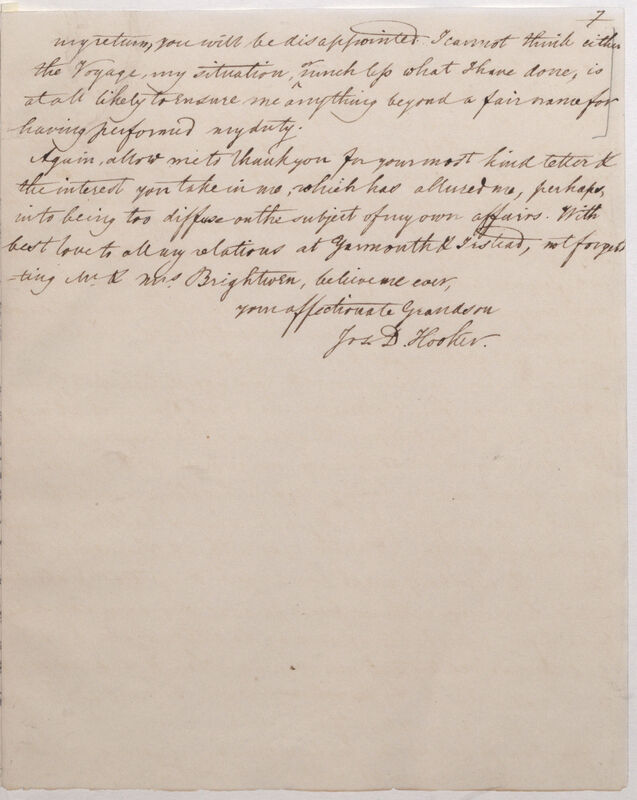 7
my return, you will be disappointed. I cannot think either
the Voyage, my situation, or much less what I have done, is
at all likely to ensure me anything beyond a fair name for
having performed my duty.
Again, allow me to thank you for your most kind letter &
the interest you take in me, which has allured me, perhaps,
into being too diffuse on the subject of my own affairs. With
best love to all my relations at Yarmouth & Irstead, not forget
-ting Mr. & Mrs. Brightwen, believe me ever,
your affectionate Grandson
Jos. D. Hooker.